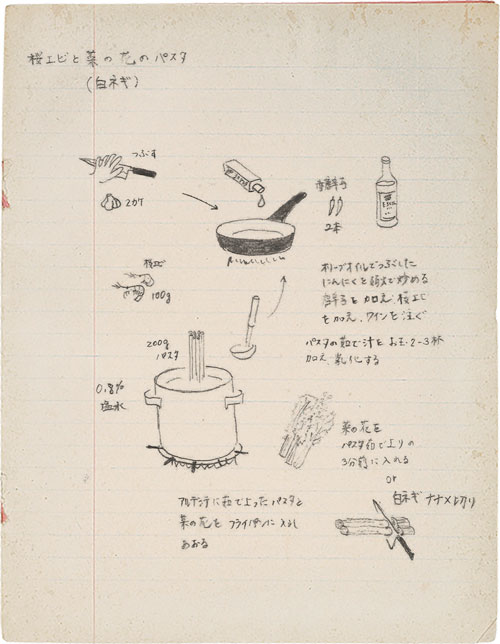 桜エビと菜の花のパスタ
(白ネギ)
つぶす
2カケ
唐辛子
2本
桜エビ
100g
オリーブオイルでつぶした
にんにくを弱火で炒める
唐辛子を加え、桜エビ
を加え、ワインを注ぐ
パスタの茹で汁をお玉2-3杯
加え、乳化する
200g
パスタ
0.8%
塩水
菜の花を
パスタ茹で上りの
3分前に入れる
or
白ネギ ナナメ切り
アルデンテに茹で上ったパスタと
菜の花を フライパンに入れ
あおる